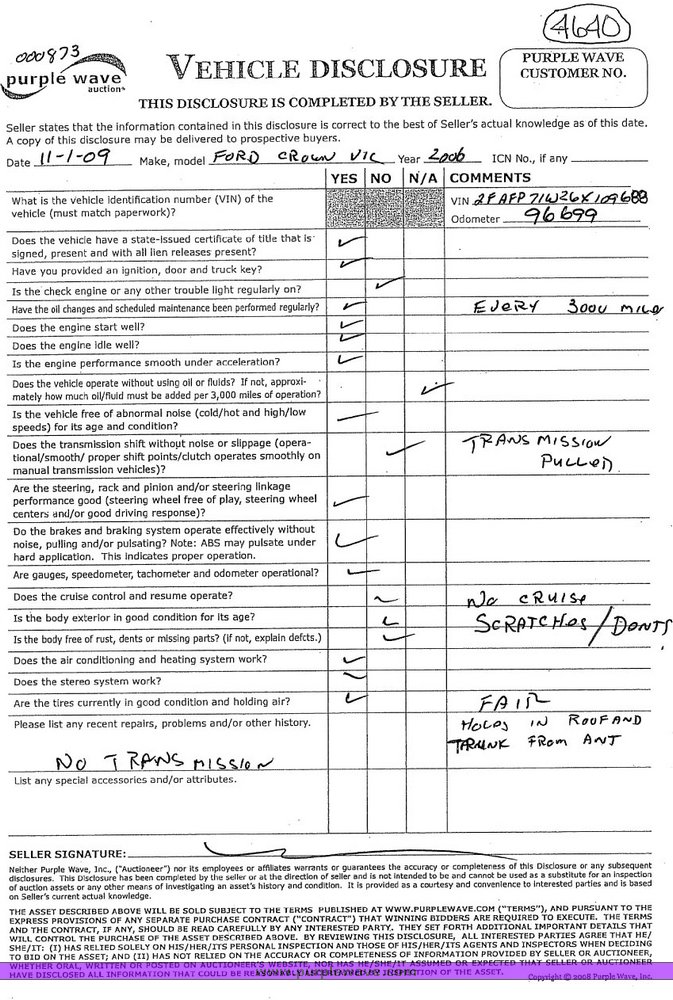 4640
000873
purple wave
auction®
VEHICLE DISCLOSURE
PURPLE WAVE
CUSTOMER NO.
THIS DISCLOSURE IS COMPLETED BY THE SELLER.
Seller states that the information contained in this disclosure is correct to the best of Seller's actual knowledge as of this date.
A copy of this disclosure may be delivered to prospective buyers.
Date 11-1-09 Make, model FORD CROWN VIC Year 2006 ICN No., if any
YES NO N/A COMMENTS
What is the vehicle identification number (VIN) of the
vehicle (must match paperwork)?
VIN 2FAFP71W26X109688
Odometer 96699
Does the vehicle have a state-issued certificate of title that is
signed, present and with all lien releases present?
Have you provided an ignition, door and truck key?
Is the check engine or any other trouble light regularly on?
Have the oil changes and scheduled maintenance been performed regularly? EVERY 3000 MILES
Does the engine start well?
Does the engine idle well?
Is the engine performance smooth under acceleration?
Does the vehicle operate without using oil or fluids? If not, approxi-
mately how much oil/fluid must be added per 3,000 miles of operation?
Is the vehicle free of abnormal noise (cold/hot and high/low
speeds) for its age and condition?
Does the transmission shift without noise or slippage (opera-
tional/smooth/ proper shift points/clutch operates smoothly on
manual transmission vehicles)?
TRANSMISSION
PULLED
Are the steering, rack and pinion and/or steering linkage
performance good (steering wheel free of play, steering wheel
centers and/or good driving response)?
Do the brakes and braking system operate effectively without
noise, pulling and/or pulsating? Note: ABS may pulsate under
hard application. This indicates proper operation.
Are gauges, speedometer, tachometer and odometer operational?
Does the cruise control and resume operate? No CRUISE
Is the body exterior in good condition for its age? SCRATCHES/DENTS
Is the body free of rust, dents or missing parts? (if not, explain defcts.)
Does the air conditioning and heating system work?
Does the stereo system work?
Are the tires currently in good condition and holding air? FAIR
Please list any recent repairs, problems and/or other history. HOLES IN ROOF AND
TRUNK FROM ANT
NO TRANSMISSION
List any special accessories and/or attributes.
SELLER SIGNATURE:
Neither Purple Wave, Inc., ("Auctioneer") nor its employees or affiliates warrants or guarantees the accuracy or completeness of this Disclosure or any subsequent
disclosures. This Disclosure has been completed by the seller or at the direction of seller and is not intended to be and cannot be used as a substitute for an inspection
of auction assets or any other means of investigating an asset's history and condition. It is provided as a courtesy and convenience to interested parties and is based
on Seller's current actual knowledge.
THE ASSET DESCRIBED ABOVE WILL BE SOLD SUBJECT TO THE TERMS PUBLISHED AT WWW.PURPLEWAVE.COM ("TERMS"), AND PURSUANT TO THE
EXPRESS PROVISIONS OF ANY SEPARATE PURCHASE CONTRACT ("CONTRACT") THAT WINNING BIDDERS ARE REQUIRED TO EXECUTE. THE TERMS
AND THE CONTRACT, IF ANY, SHOULD BE READ CAREFULLY BY ANY INTERESTED PARTY. THEY SET FORTH ADDITIONAL IMPORTANT DETAILS THAT
WILL CONTROL THE PURCHASE OF THE ASSET DESCRIBED ABOVE. BY REVIEWING THIS DISCLOSURE, ALL INTERESTED PARTIES AGREE THAT HE/
SHE/IT: (I) HAS RELIED SOLELY ON HIS/HER/ITS PERSONAL INSPECTION AND THOSE OF HIS/HER/ITS AGENTS AND INSPECTORS WHEN DECIDING
TO BID ON THE ASSET; AND (II) HAS NOT RELIED ON THE ACCURACY OR COMPLETENESS OF INFORMATION PROVIDED BY SELLER OR AUCTIONEER,
WHETHER ORAL, WRITTEN OR POSTED ON AUCTIONEER'S WEBSITE, NOR HAS HE/SHE/IT ASSUMED OR EXPECTED THAT SELLER OR AUCTIONEER
HAVE DISCLOSED ALL INFORMATION THAT COULD BE REASONABLY ASCERTAINED BY INSPECTION OF THE ASSET.
Copyright © 2008 Purple Wave, Inc.